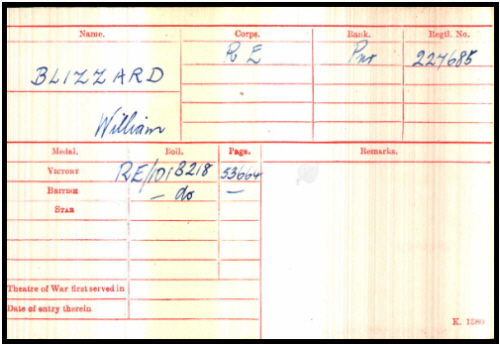 Name. Corps. Rank. Regtl. No.
BLIZZARD R E Pnr 227685
William
Medal. Roll. Page. Remarks.
VICTORY RE/101B218 53664
BRITISH — do —
STAR
Theatre of War first served in
Date of entry therein
K. 1380